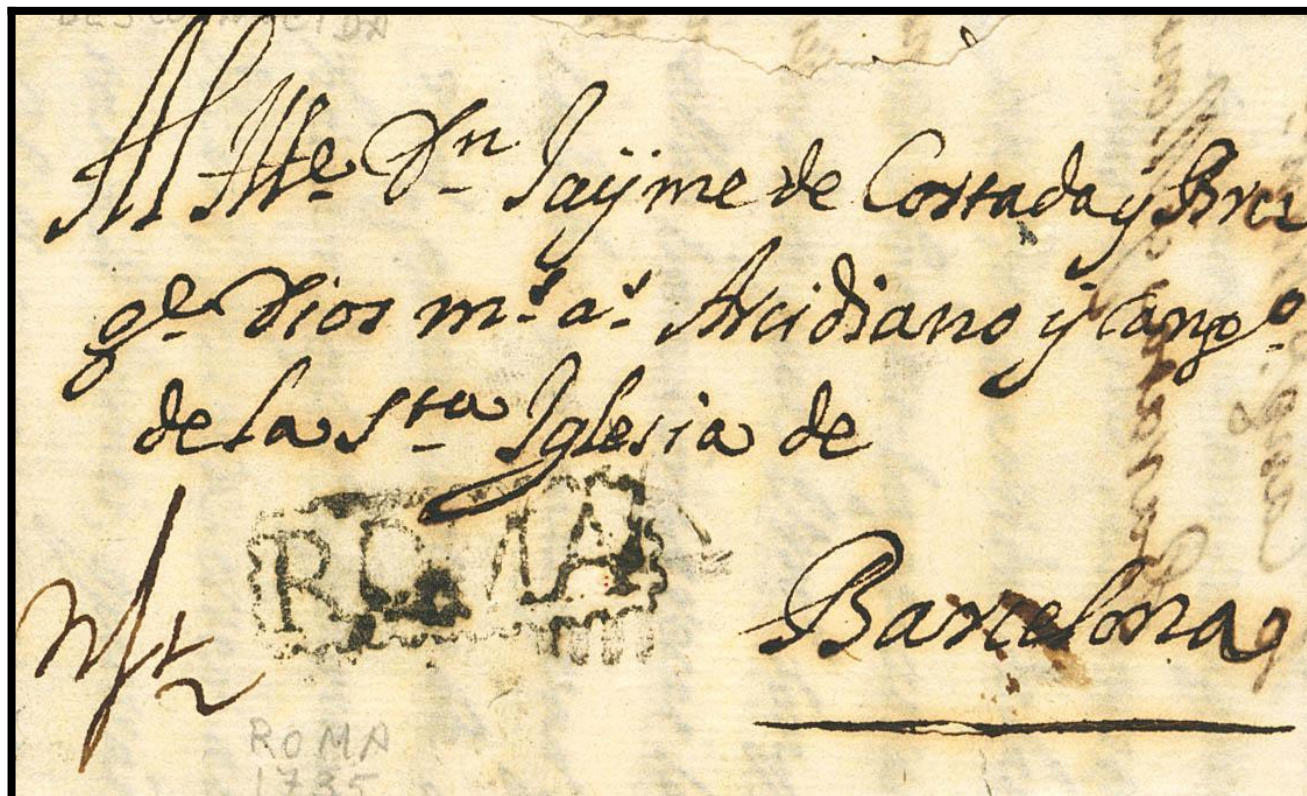 DESCONOCIDA
Al Itte. Dn Jayme de Cortada y Bru
ge. Dios ms. as. Arcidiano y Cango.
de la Sta Iglesia de
ROMA
Barcelona
ROMA
1735